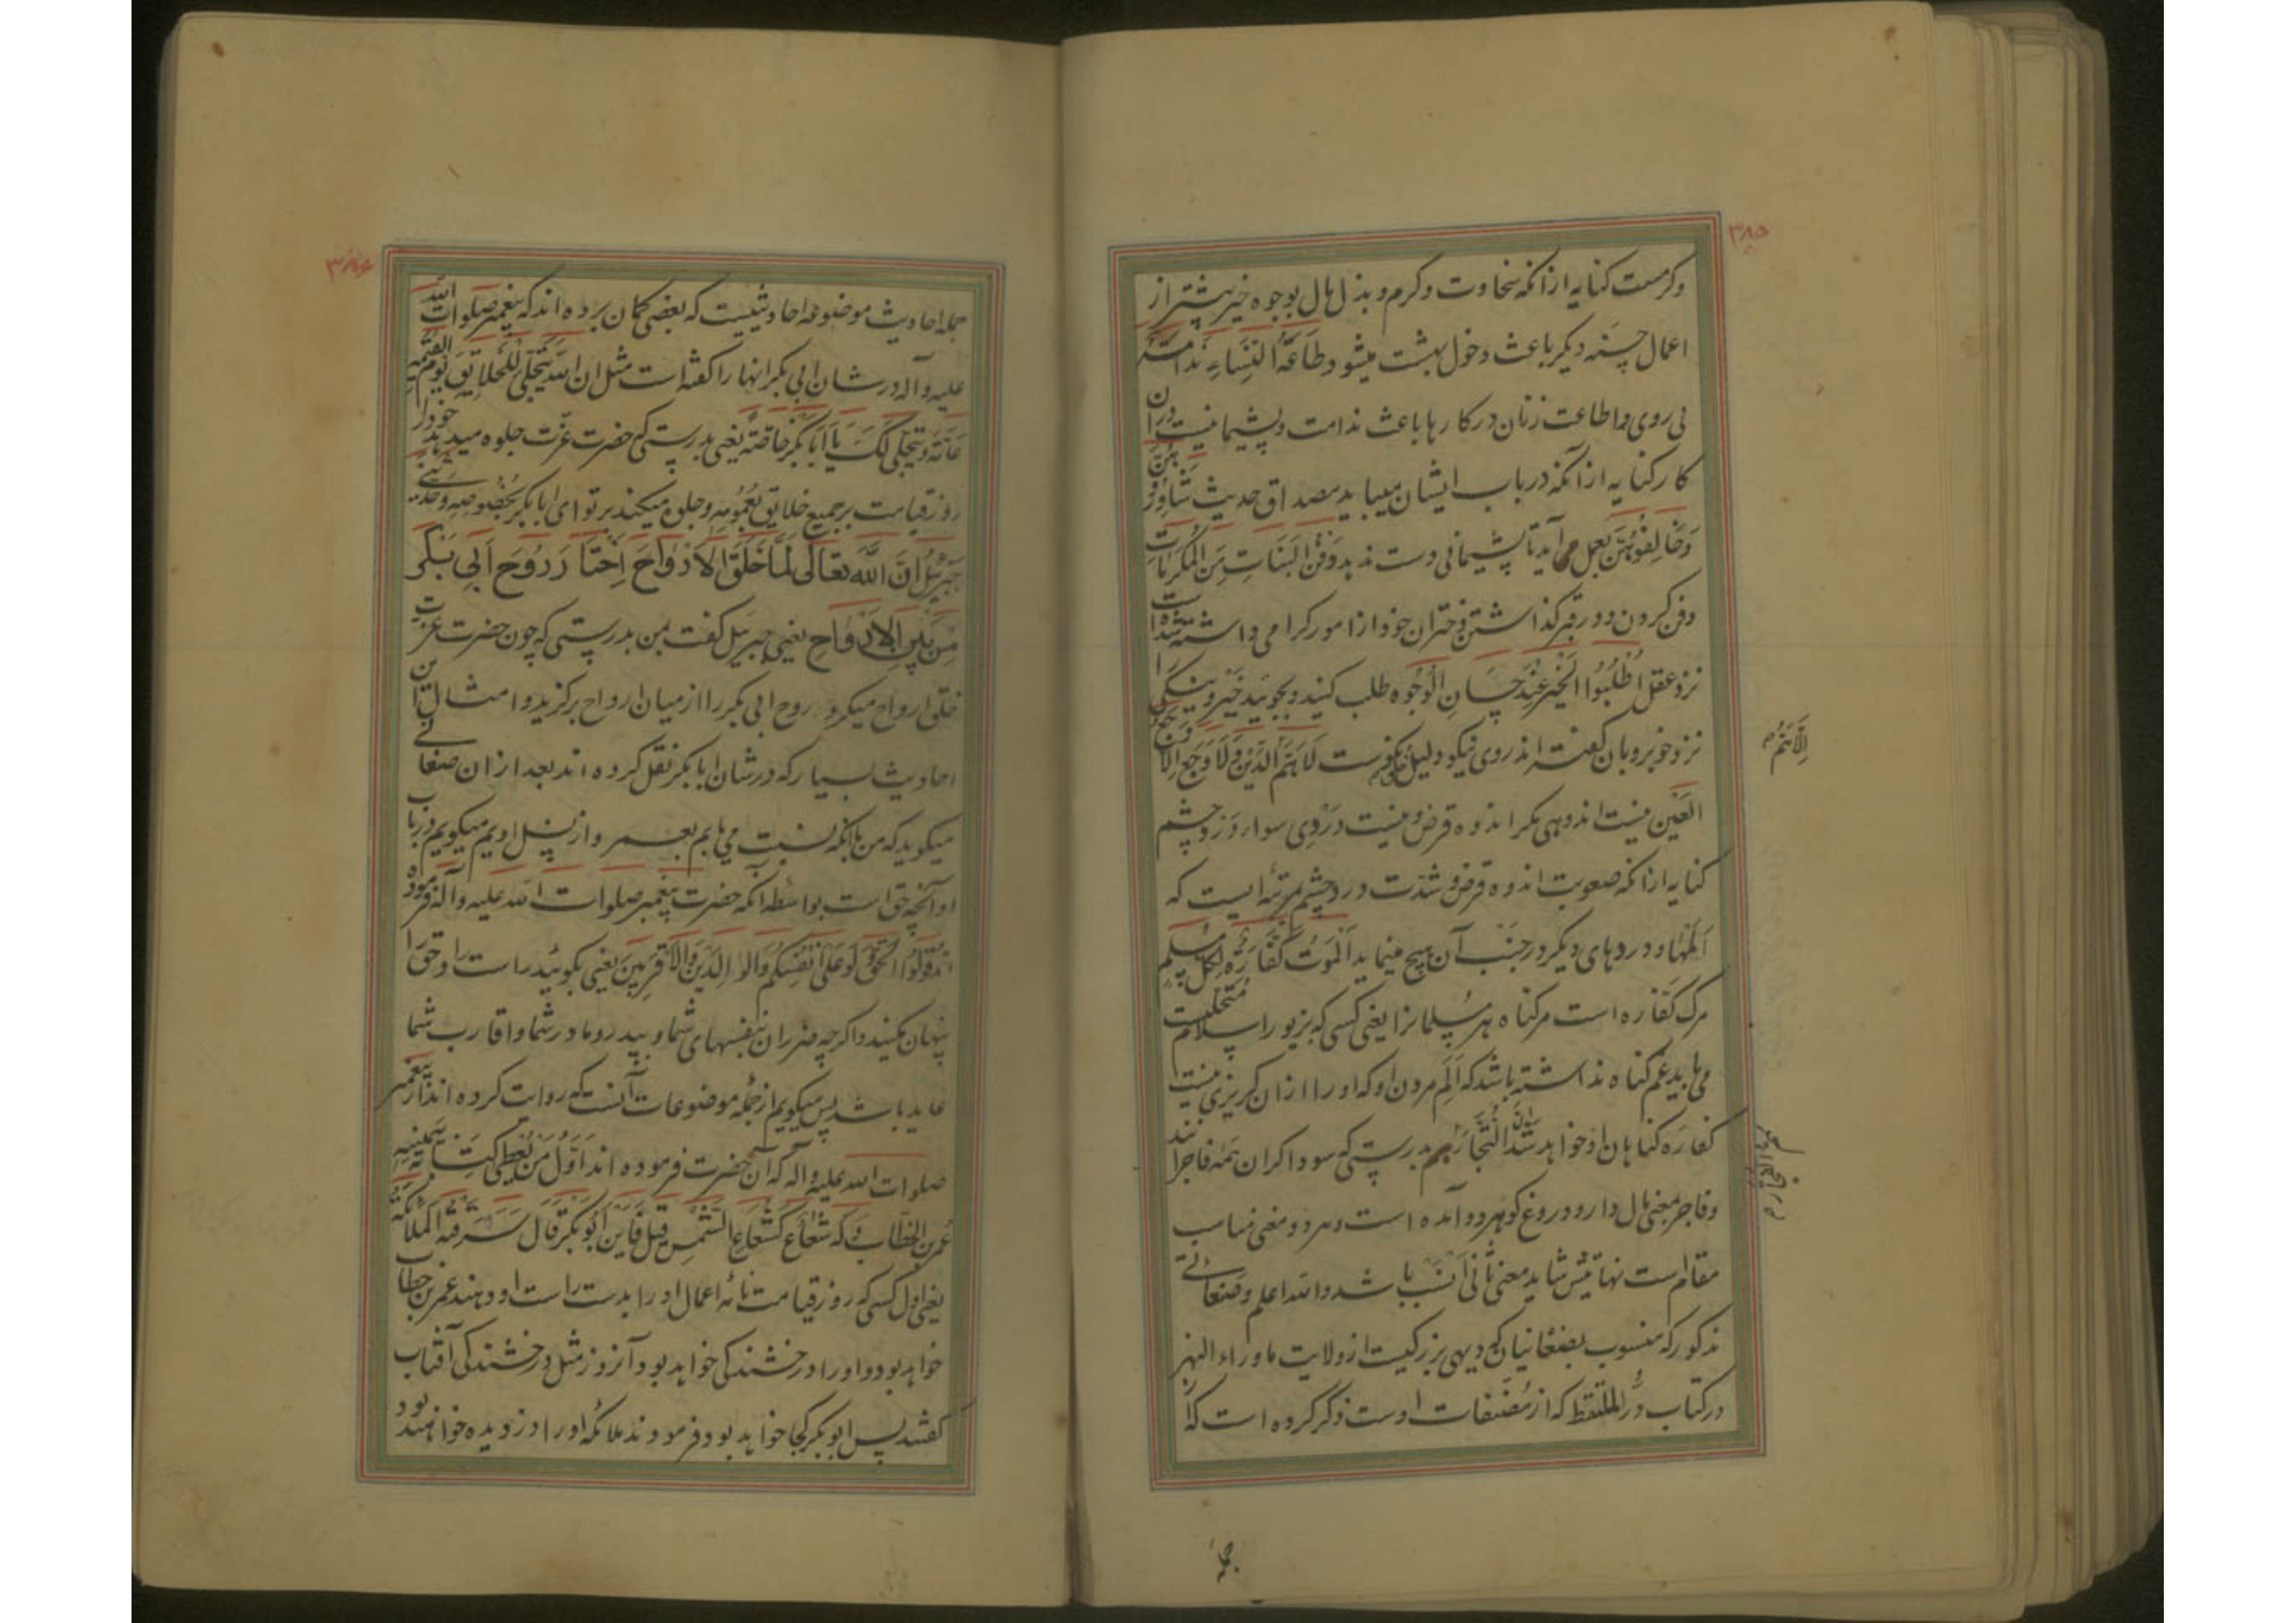 ۳۸۵
وکرمست کنایه ازانکه سخاوت وکرم وبذل مال بوجوه خیر بیشتر از
اعمال حسنه دیکر باعث دخول بهشت میشود طَاعَةُ النِّسَاءِ نَدَامَة
بی روی واطاعت زنان درکارها باعث ندامت وپشیمانیست دران
کار کنایه ازانکه در باب ایشان میباید مصداق حدیث شَاوِرُوهُنَّ
وَخَالِفُوهُنَّ بعمل آید تا پشیمانی دست ندهد دَفْنُ البَنَاتِ مِنَ المَکْرُمَاتِ
دفن کردن ودر قبر کذاشتن دختران خود از امور کرامی داشته شده است
نزد عقل اُطْلُبُوا الخَیْرَ عِنْدَ حِسَانِ الْوُجُوه طلب کنید وبجویید خیر ونیکی را
نزد خوبرویان کفته اند روی نیکو دلیل خوی نکوست لَا هَمَّ اِلَّا هَمُّ الدَّیْنِ وَلَا وَجَعَ اِلَّا وَجَعُ
العَیْن نیست اندوهی مکر اندوه قرض ونیست دردی سوای درد چشم
کنایه ازانکه صعوبت اندوه قرض وشدت درد چشم بمرتبه ایست که
اَلَمها ودردهای دیکر در جَنْب آن هیچ مینماید اَلْمَوْتُ کَفَّارَةٌ لِکُلِّ مُسْلِمٍ
مرک کفاره است مرکناه هر مسلمانرا یعنی کسی که بزیور اسلام متحلیست
می باید غم کناه نداشته باشد که اَلَمِ مردن او که اورا ازان کریزی نیست
کفاره کناهان او خواهد شد اِنَّ التُّجَّارَ بدرستی که سوداکران همه فاجرانند
وفاجر بمعنی مال دار ودروغ کو هردو آمده است وهردو معنی مناسب
مقام است نهایتش شاید معنی ثانی اَنْسَب باشد والله اعلم وصنعانی
مذکور که منسوب بصنعانیان که دیهی بزرکیست از ولایت ماوراء النهر
درکتاب دُرّ الملتقط که از مُصَنّفات اوست ذکر کرده است که از
جمله
۳۸۶
جمله احادیث موضوعه احادیثیست که بعضی کمان برده اند که پیغمبر صلوات الله
علیه وآله در شان ابی بکر انها را کفته است مثل ان الله یَتَجَلّی لِلخَلایِقِ یَوْمَ القِیمَةِ
عَامَّةً وَیَتَجَلّی لَکَ یَا اَبَا بَکْرٍ خَاصَّةً یعنی بدرستی که حضرت عزت جلوه میدهد خودرا
روز قیامت بر جمیع خلایق بعُمُومه وجلوه میکند بر تو ای ابا بکر بخُصُوصِه وَحَدَّثَنِی
جَبرَئِیلُ اَنَّ اللّٰهَ تَعَالٰی لَمَّا خَلَقَ الاَرْوَاحَ اِخْتَارَ رُوحَ اَبِی بَکر
مِنْ بَیْنِ الاَرْوَاحِ یعنی جبرییل کفت بمن بدرستی که چون حضرت عزت
خلق ارواح میکرد روح ابی بکر را از میان ارواح برکزید وامثال این
احادیث بسیار که در شان ابا بکر نقل کرده اند بعد ازان صنعانی
میکوید که من باانکه نسبت می یابم بعمر واز نسل اویم میکویم درباب
او آنچه حق است بواسطه آنکه حضرت پیغمبر صلوات الله علیه وآله فرموده
اند قُولُوا الْحَقَّ وَلَوْ عَلٰی اَنْفُسِکُم وَالوَالِدَیْنِ وَالاَقْرَبِینَ یعنی بکویید راست را وحق را
پنهان مکنید واکرچه ضرر ان بنفسهای شما وبپدر ومادر شما واقارب شما
عاید باشد پس میکویم از جمله موضوعات آنست که روایت کرده اند از پیغمبر
صلوات الله علیه وآله که آن حضرت فرموده اند اَوَّلُ مَنْ یُعْطٰی کِتَابَهُ بِیَمِینِهِ
عُمَرُ بْنُ الخَطَّاب وَلَهُ شُعَاعٌ کَشُعَاعِ الشَّمْسِ قِیلَ فَاَیْنَ اَبُو بَکْرٍ قَالَ سَرَقَتْهُ المَلَائِکَةُ
یعنی اول کسی که روز قیامت نامه اعمال اورا بدست راست او دهند عمر بن خطاب
خواهد بود واورا درخشندکی خواهد بود آنروز مثل درخشندکی آفتاب
کفتند پس ابو بکر کجا خواهد بود فرمودند ملائکه اورا دزدیده خواهند بود